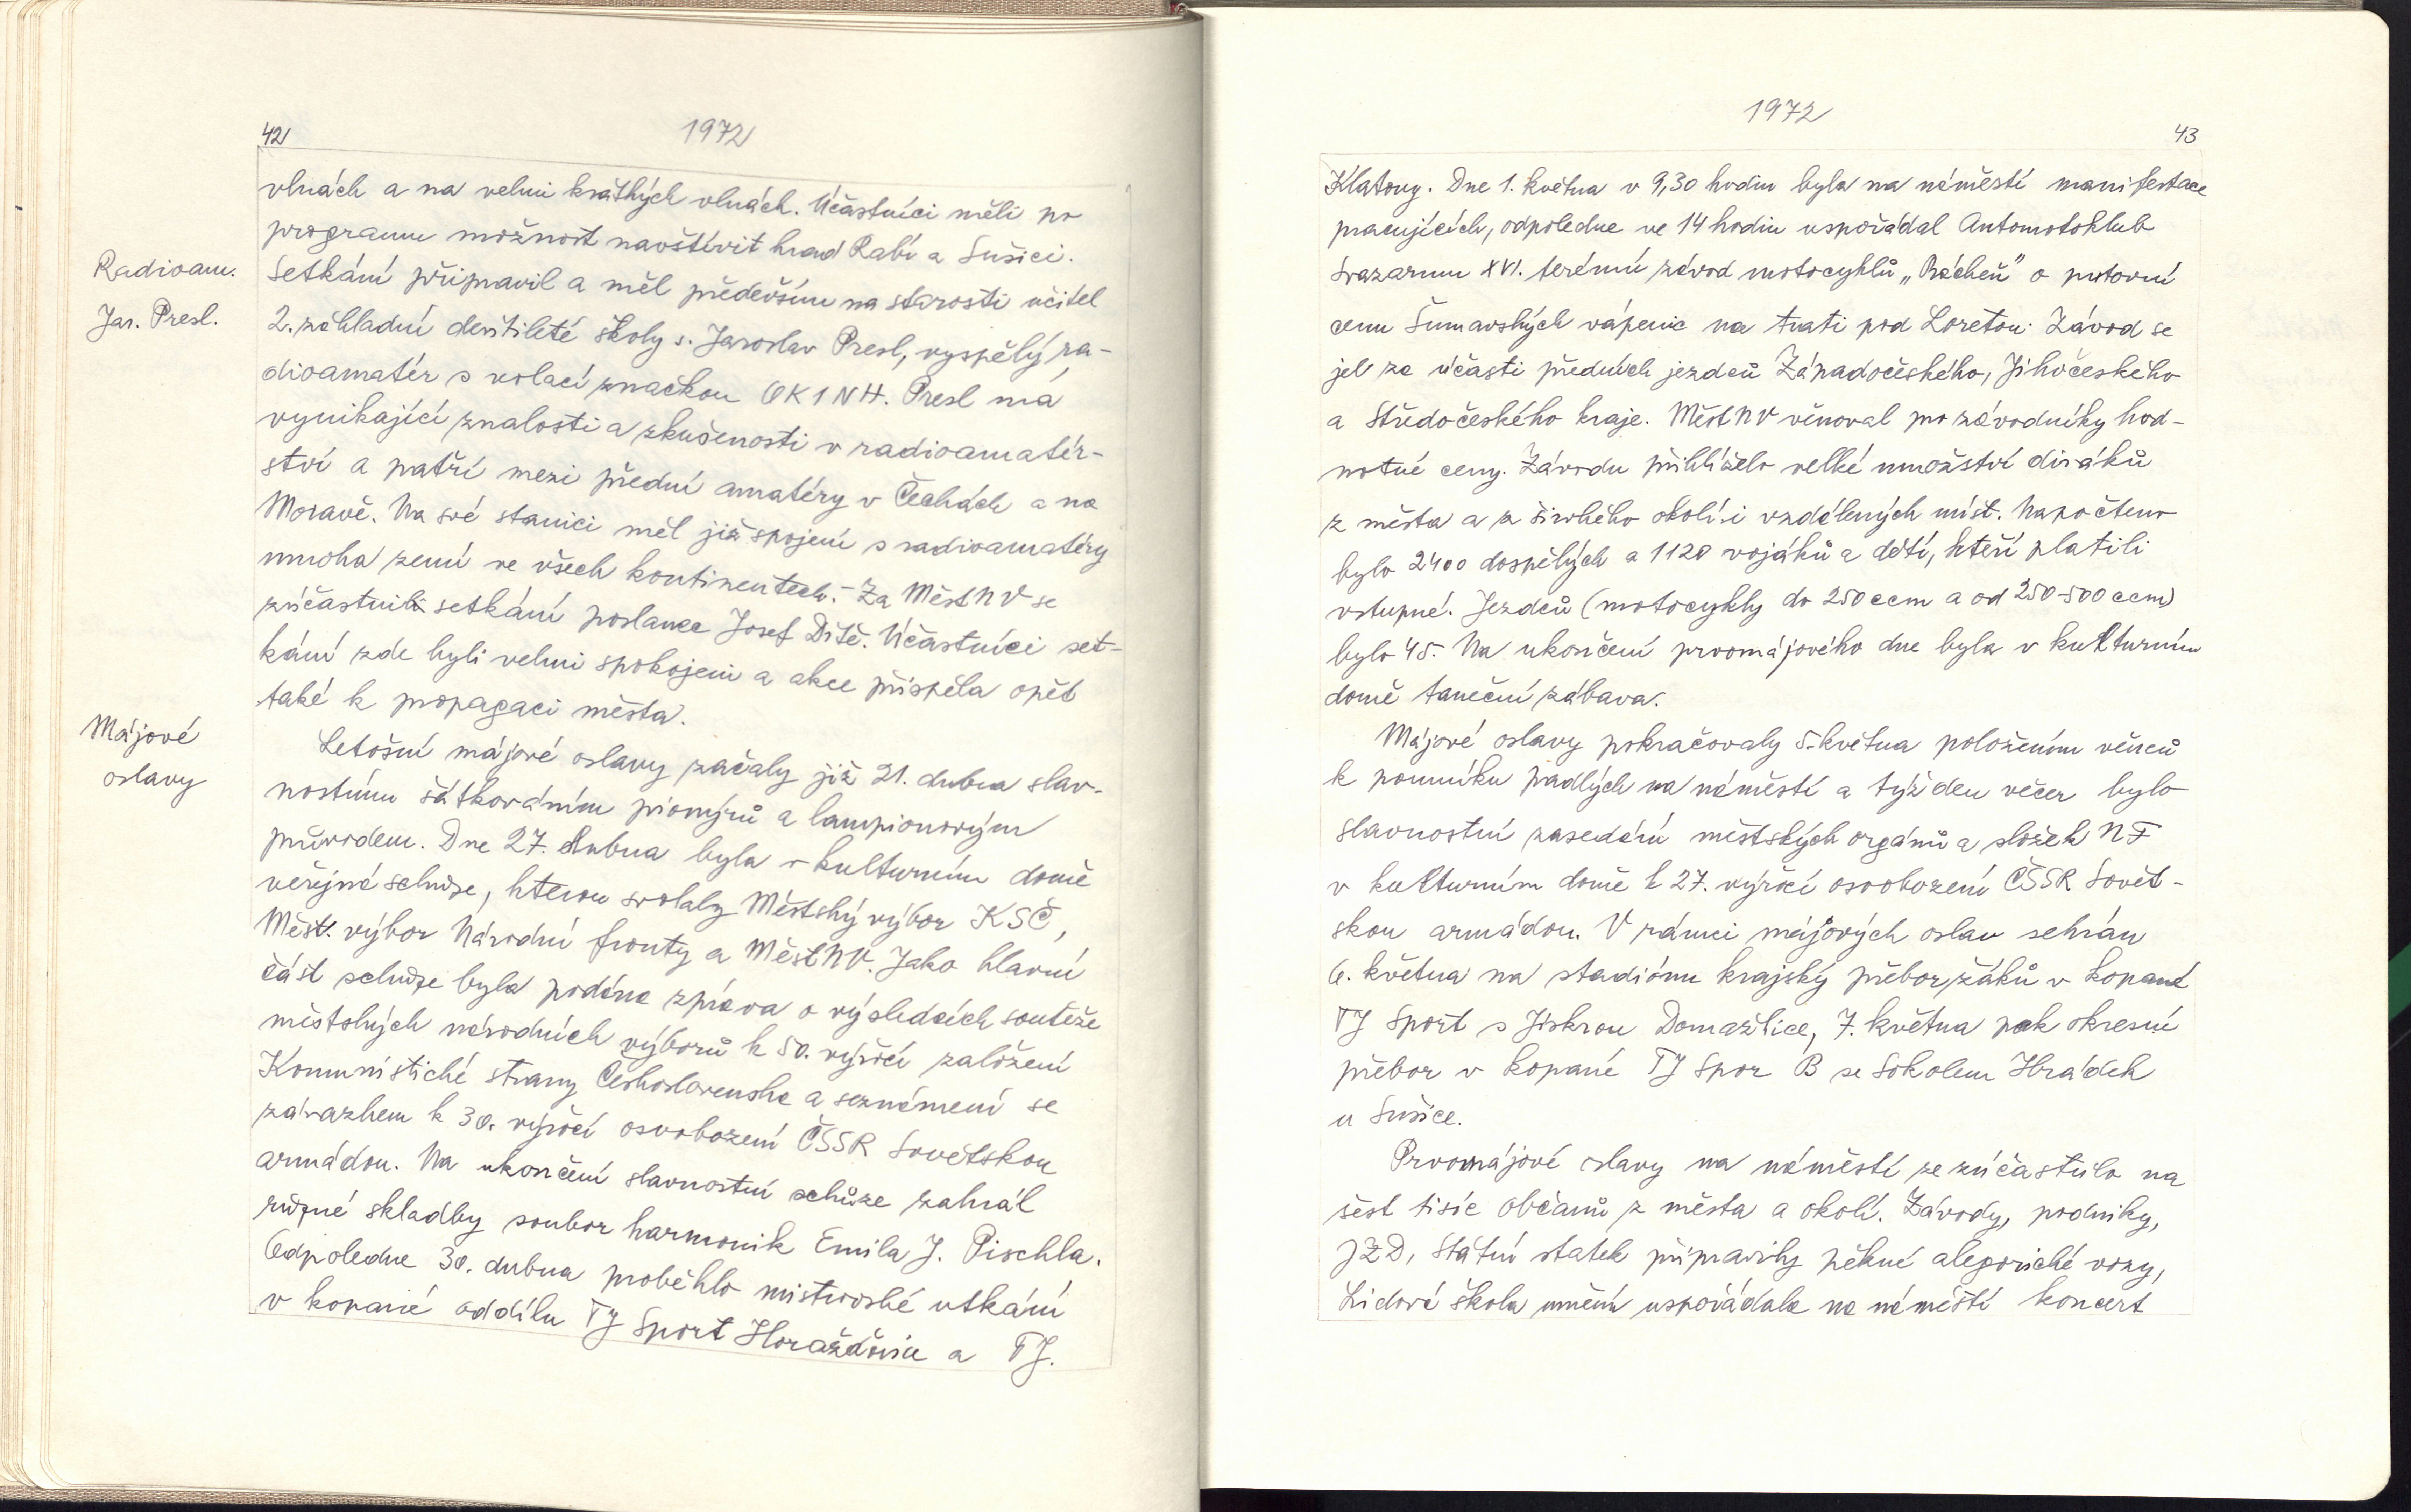 42
1972
vlnách a na velmi krátkých vlnách. Účastníci měli po
programu možnost navštívit hrad Rabí a Sušici.
Radioam.
Setkání připravil a měl především na starosti učitel
Jar. Presl.
2. základní devítileté školy s. Jaroslav Presl, vyspělý ra-
dioamatér s volací značkou OK1NH. Presl má
vynikající znalosti a zkušenosti v radioamatér-
ství a patří mezi přední amatéry v Čechách a na
Moravě. Na své stanici měl již spojení s radioamatéry
mnoha zemí ve všech kontinentech. – Za MěstNV se
zúčastnil setkání poslanec Josef Dítě. Účastníci set-
kání zde byli velmi spokojeni a akce přispěla opět
také k propagaci města.
Májové
oslavy
Letošní májové oslavy začaly již 21. dubna slav-
nostním šátkováním pionýrů a lampionovým
průvodem. Dne 27. dubna byla v kulturním domě
veřejná schůze, kterou svolaly Městský výbor KSČ,
Měst. výbor Národní fronty a MěstNV. Jako hlavní
část schůze byla podána zpráva o výsledcích soutěže
městských národních výborů k 50. výročí založení
Komunistické strany Československa a seznámení se
závazkem k 30. výročí osvobození ČSSR Sovětskou
armádou. Na ukončení slavnostní schůze zahrál
různé skladby soubor harmonik Emila J. Pischla.
Odpoledne 30. dubna proběhlo mistrovské utkání
v kopané oddílu TJ Sport Horažďovice a TJ.
1972
43
Klatovy. Dne 1. května v 9,30 hodin byla na náměstí manifestace
pracujících, odpoledne ve 14 hodin uspořádal Automotoklub
Svazarmu XVI. terénní závod motocyklů „Prácheň" o putovní
cenu Šumavských vápenic na trati pod Loretou. Závod se
jel za účasti předních jezdců Západočeského, Jihočeského
a Středočeského kraje. MěstNV věnoval pro závodníky hod-
notné ceny. Závodu přihlíželo velké množství diváků
z města a z širokého okolí i vzdálených míst. Napočteno
bylo 2400 dospělých a 1120 vojáků a dětí, kteří platili
vstupné. Jezdců (motocykly do 250 ccm a od 250-500 ccm)
bylo 45. Na ukončení prvomájového dne byla v kulturním
domě taneční zábava.
Májové oslavy pokračovaly 5. května položením věnců
k pomníku padlých na náměstí a týž den večer bylo
slavnostní zasedání městských orgánů a složek NF
v kulturním domě k 27. výročí osvobození ČSSR Sovět-
skou armádou. V rámci májových oslav sehrán
6. května na stadiónu krajský přebor žáků v kopané
TJ Sport s Jiskrou Domažlice, 7. května pak okresní
přebor v kopané TJ Spor B se Sokolem Hrádek
u Sušice.
Prvomájové oslavy na náměstí se zúčastnilo na
šest tisíc občanů z města a okolí. Závody, podniky,
JZD, Státní statek připravily pěkné alegorické vozy,
Lidová škola umění uspořádala na náměstí koncert